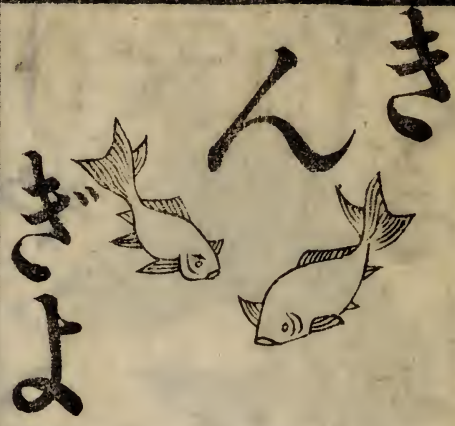 きん
ぎよ